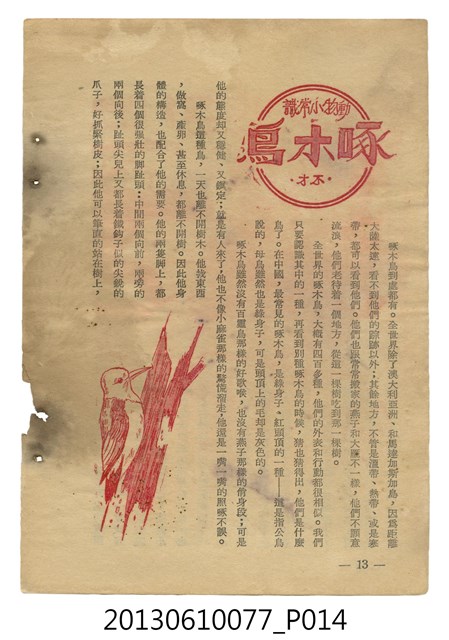 動物小常識
啄木鳥
•不才•
啄木鳥到處都有。全世界除了澳大利亞洲、和馬達加斯加島，因為距離
大陸太遠，看不到他們的踪跡以外；其餘地方，不管是溫帶、熱帶、或是寒
帶，都可以看到他們。他們也跟常常搬家的燕子和大雁不一樣，他們不願意
流浪，他們老待着一個地方，從這一棵樹吃到那一棵樹。
全世界的啄木鳥，大概有四百多種，他們的外表和行動都很相似。我們
只要認識其中的一種，再看到別種啄木鳥的時候，猜也猜得出，他們是什麼
鳥了。在中國，最常見的啄木鳥，是綠身子、紅頭頂的一種——這是指公鳥
說的，母鳥雖然也是綠身子，可是頭頂上的毛却是灰色的。
啄木鳥雖然沒有百靈鳥那樣的好歌喉，也沒有燕子那樣的俏身段；可是
他的態度却又穩健、又鎮定；就是有人來了，他也不像小麻雀那樣的驚慌溜走，他還是一嘴一嘴的照啄不誤。
啄木鳥這種鳥，一天也離不開樹木。他找東西
，做窩、產卵、甚至休息，都離不開樹。因此他身
體的構造，也配合了他的需要。他的兩隻脚上，都
長着四個很强壯的脚趾頭：中間兩個向前，兩旁的
兩個向後；趾頭尖兒上又都長着鐵鈎子似的尖銳的
爪子，好抓緊樹皮；因此他可以筆直的站在樹上，
— 13 —
20130610077_P014